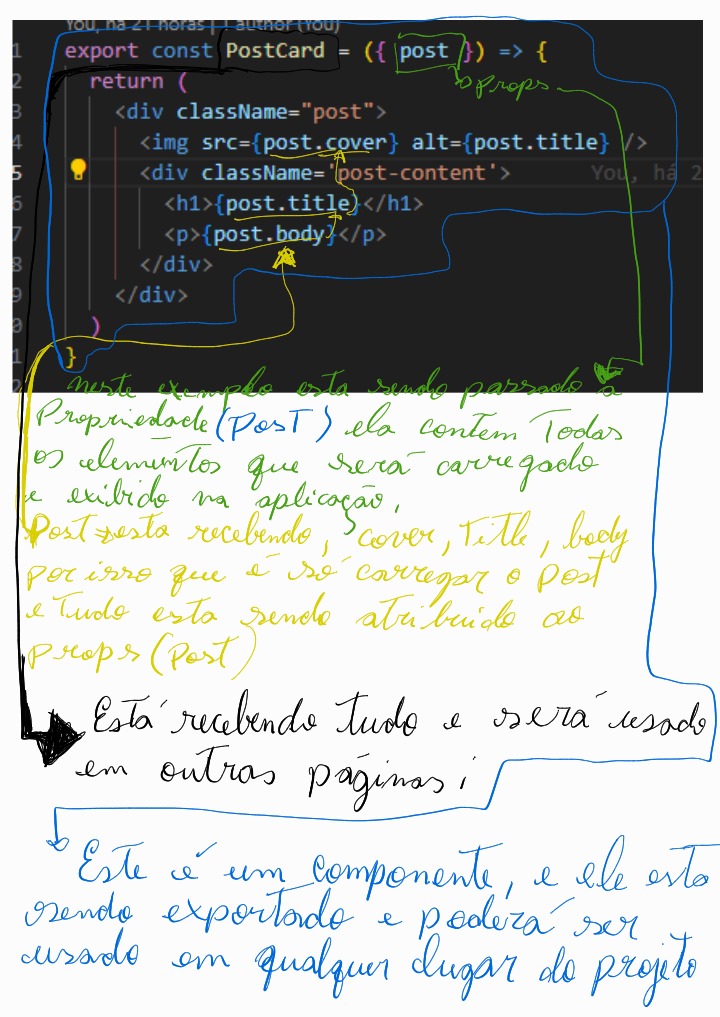 You, há 21 horas | 1 author (You)
1 export const PostCard = ({ post }) => {
2 return (
3 <div className="post">
4 <img src={post.cover} alt={post.title} />
5 <div className='post-content'> You, há 2
6 <h1>{post.title}</h1>
7 <p>{post.body}</p>
8 </div>
9 </div>
0 )
1 }
2
props
neste exemplo esta sendo passado a
Propriedade (PosT) ela contem Todas
os elementos que será carregado
e exibido na aplicação,
Post esta recebendo, cover, Title, body
por isso que é só carregar o Post
e Tudo esta sendo atribuido ao
props (Post)
Está recebendo tudo e será usado
em outras páginas;
Este é um componente, e ele esta
sendo exportado e poderá ser
usado em qualquer lugar do projeto